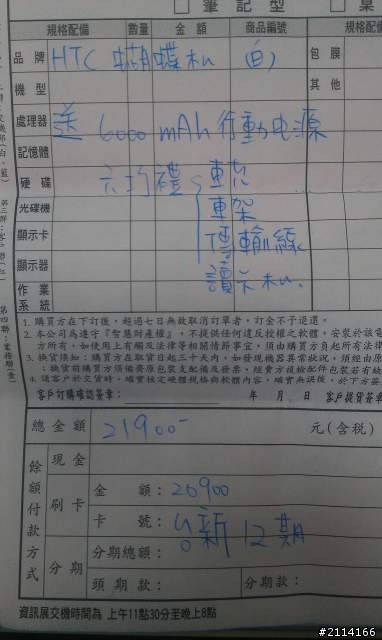 筆記型
規格配備 數量 金額 商品編號 規格配
品牌 HTC 蝴蝶机 (白) 包膜
機型 其他
處理器 送 6000 mAh 行動电源
記憶體
硬碟 六巧禮 車充
光碟機 車架
顯示卡 傳輸線
顯示器 讀卡机
作業系統
1. 購買方在下訂後,超過七日無故取消訂單者,訂金不予退還。
2. 本公司為遵守『智慧財產權』,不提供任何違反授權之軟體,安裝於該電
方所有,如使用上有觸及法律等相關情節事宜,須由購買方負起所有法律
3. 換貨須知:購買方在取貨日起三十天內,如發現機器異常狀況,須經由原
換貨前購買方須備齊原包裝及配備及發票,經賣方檢驗配件包裝若有缺
4. 請客戶於交貨時,確實核定硬體規格與軟體內容,確實無誤後,於下方簽
客戶訂購確認簽章: 年 月 日 客戶提貨簽章
總金額 21900- 元(含稅)
餘額付款方式
現金
刷卡 金額:20900
卡號: 新 12期
分期 分期總額:
頭期款: 分期款:
資訊展交機時間為 上午11點30分至晚上8點
#2114166